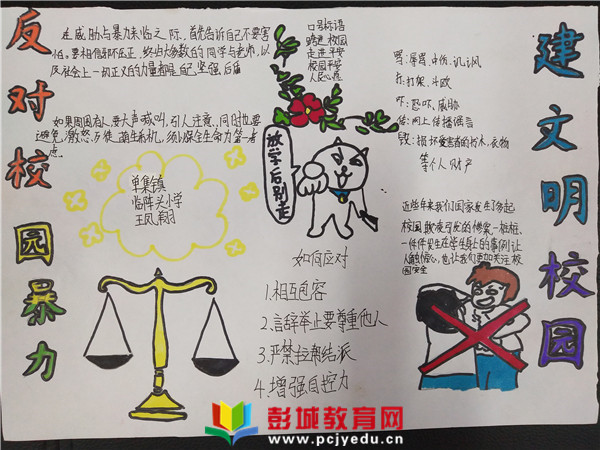 反对校园暴力
在威胁与暴力来临之际,首先告诉自己不要害
怕。要相信邪不压正,终归大多数的同学与老师,以
及社会上一切正义的力量都是自己坚强后盾
如果周围有人,要大声喊叫,引人注意。同时也要
避免激怒歹徒
须以保全生命为第一考
虑。
口号标语
跨进校园
走进平安
校园平安
人民心愿
骂:辱骂、中伤、讥讽
打:打架、斗殴
吓:恐吓、威胁
传:网上传播谣言
毁:损坏受害者的书本、衣物
等个人财产
建文明校园
单集镇
临阵头小学
王凤翔
放学后别走
近些年来我们国家发生了多起
校园欺凌可发的惨案一桩桩、
一件件发生在学生身上的事例让
也让我们更加关注校
园安全
如何应对
1.相互包容
2.言辞举止要尊重他人
3.严禁拉帮结派
4.增强自控力
彭城教育网
www.pcjyedu.cn